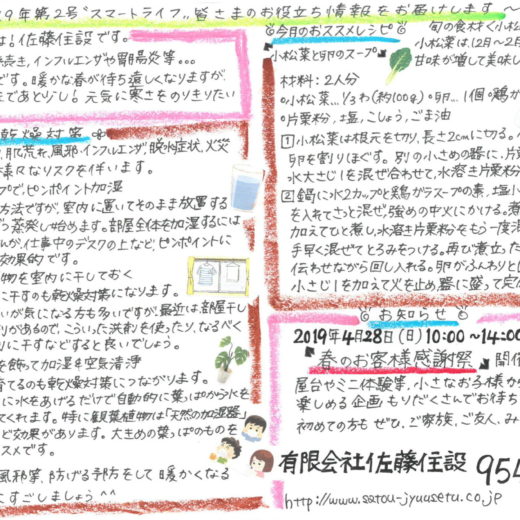 9年第2号 "スマートライフ" 皆さまのお役立ち情報をお届けします
は！佐藤住設です。
続き、インフルエンザや胃腸炎等…
です。暖かな春が待ち遠しくなりますが、
まであと少し！元気に寒さをのりきりたい
乾燥対策
、肌荒れ、風邪、インフルエンザ、脱水症状、火災
様々なリスクを伴います。
ップで、ピンポイント加湿
方法ですが、室内に置いてそのまま放置する
う蒸発し始めます。部屋全体を加湿するには
んが、仕事中のデスクの上など、ピンポイントに
効果的です。
物を室内に干しておく
に干すのも乾燥対策になります。
いが気になる方も多いですが、最近は部屋干し
りがあるので、こういった洗剤を使ったり、なるべく
りに干すなどすると良いでしょう。
を飾って加湿&空気清浄
育てるのも乾燥対策につながります。
に水をあげるだけで自動的に葉っぱから水を
てくれます。特に観葉植物は「天然の加湿器」
ど効果があります。大きめの葉っぱのものを
スメです。
風邪等、防げる予防をして暖かくなる
にすごしましょう^^
今月のおススメレシピ
小松菜と卵のスープ
旬の食材 小松
小松菜は、12月〜2月
甘味が増して美味し
材料：2人分
小松菜…1/3わ(約100g) 卵…1個 鶏が
片栗粉、塩、こしょう、ごま油
1 小松菜は根元を切り、長さ2cmに切る。
卵を割りほぐす。別の小さめの器に、片
水大さじ1を混ぜ合わせて、水溶き片栗粉
2 鍋に水2カップと鶏がらスープの素、塩
を入れてさっと混ぜ、強めの中火にかける。煮
加えてひと煮し、水溶き片栗粉をもう一度混
手早く混ぜてとろみをつける。再び煮立った
伝わせながら回し入れる。卵がふんわりと
小さじ1を加えて火を止め、器に盛って完
お知らせ
2019年4月28日(日) 10:00〜14:00
『春のお客様感謝祭』開催
屋台やミニ体験等、小さなお子様か
楽しめる企画もりだくさんでお待ち
初めての方もぜひ、ご家族、ご友人、み
有限会社佐藤住設 954
http://www.satou-jyuusetu.co.jp